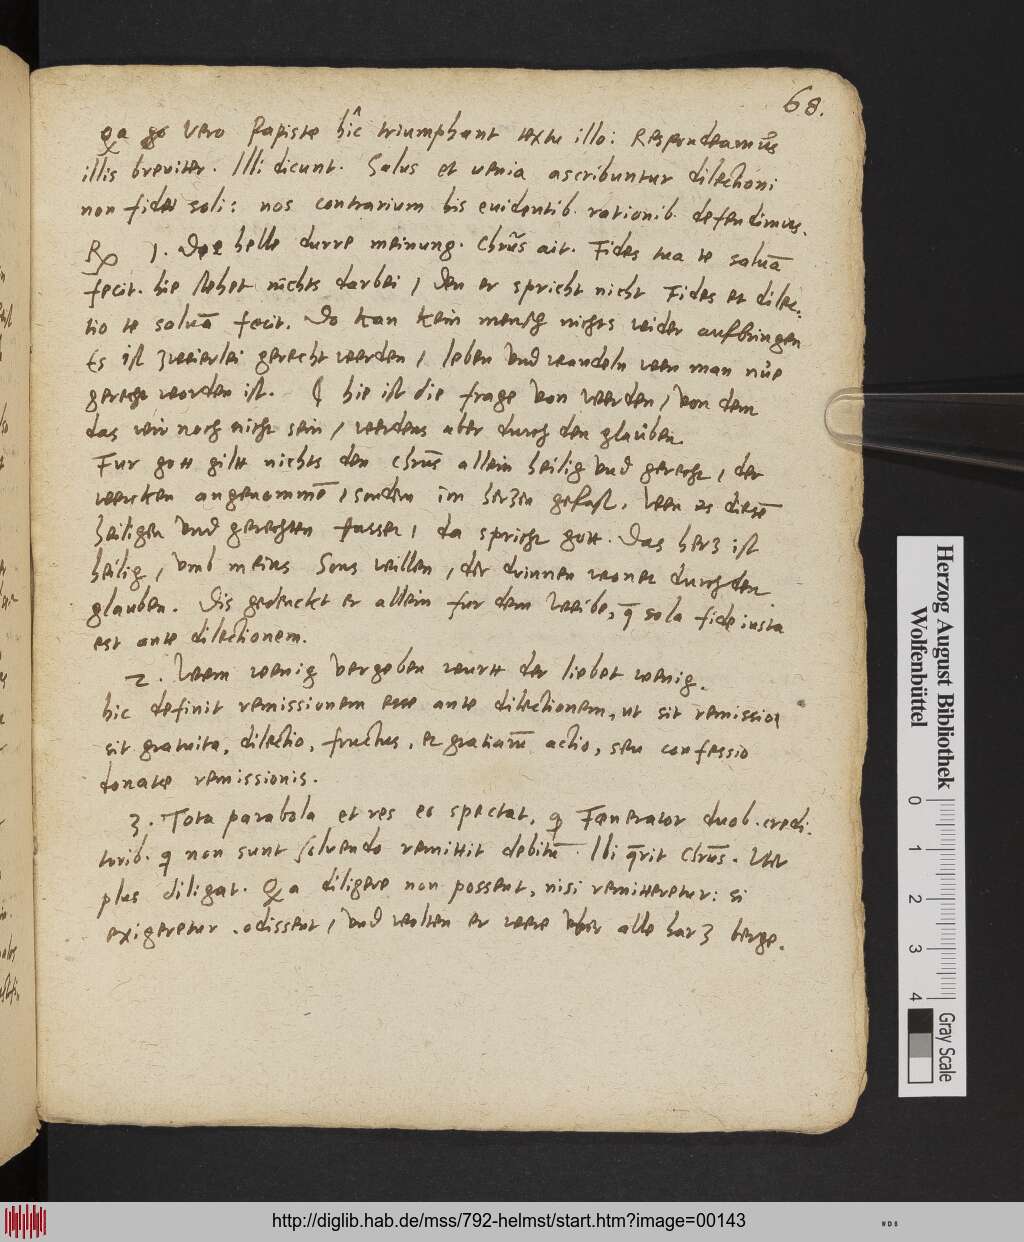 68.
Qa vero Papiste hîc triumphant textu illo: Respondeamus
illis breviter. Illi dicunt. Salus et venia ascribuntur dilectioni
non fidei soli: nos contrarium his euidentib. rationib. defendimus.
Rx 1. Die helle durre meinung. Chrūs ait. Fides tua te saluā
fecit. hie stehet nichts darbei / den er spricht nicht Fides et dilec-
tio te saluā fecit. Do kan kein mensch nichts wider aufbringen
Es ist zweierlei gerecht werden / leben und wandeln wen man nůe
gerecht worden ist. hie ist die frage von werden / von dem
das wir noch nicht sein / werdens aber durch den glauben.
Fur gott gillt nichts den Chrūs allein heilig und gerecht / der
wercken angenommē / sondern im herzen gefast. Wen er diesē
heiligen und gerechten fasset / da spricht gott. Das herz ist
heilig / umb meins Sons willen / der drinnen wonet durch den
glauben. Dis gedenckt er allein fur dem Weibe, q̄ sola fide iusta
est ante dilectionem.
2. Wem wenig vergeben wurtt der liebet wenig.
hic definit remissionem esse ante dilectionem, ut sit remissio
sit gratuita, dilectio, fructus, et gratiarū actio, seu confessio
donatae remissionis.
3. Tota parabola et res eo spectat, q Fænerator duob. credi-
torib. q non sunt soluendo remittit debitū. Ibi q̄rit Chrūs. Uter
plus diligat. Qa diligere non possent, nisi remitteretur: si
exigeretur, odissent / und wolten er were uber alle harz berge.
Herzog August Bibliothek
Wolfenbüttel
0 1 2 3 4
Gray Scale
http://diglib.hab.de/mss/792-helmst/start.htm?image=00143